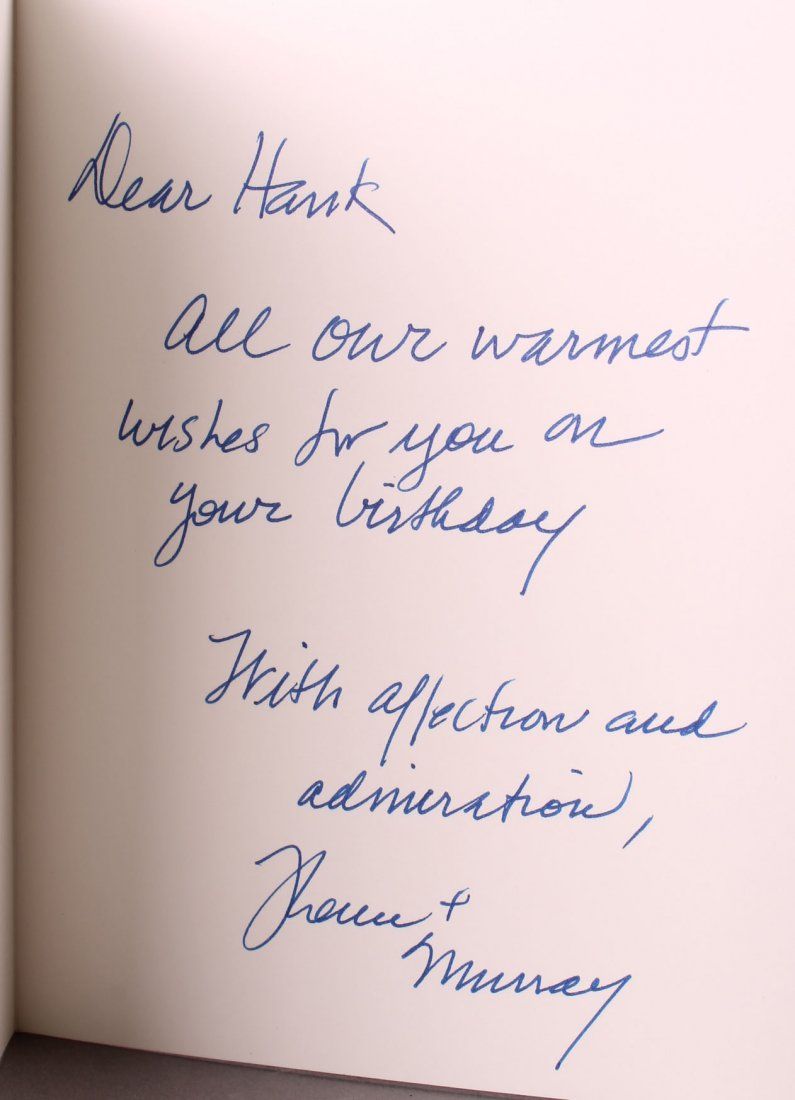 Dear Hank
All our warmest
wishes for you on
your birthday
With affection and
admiration,
+
Murray